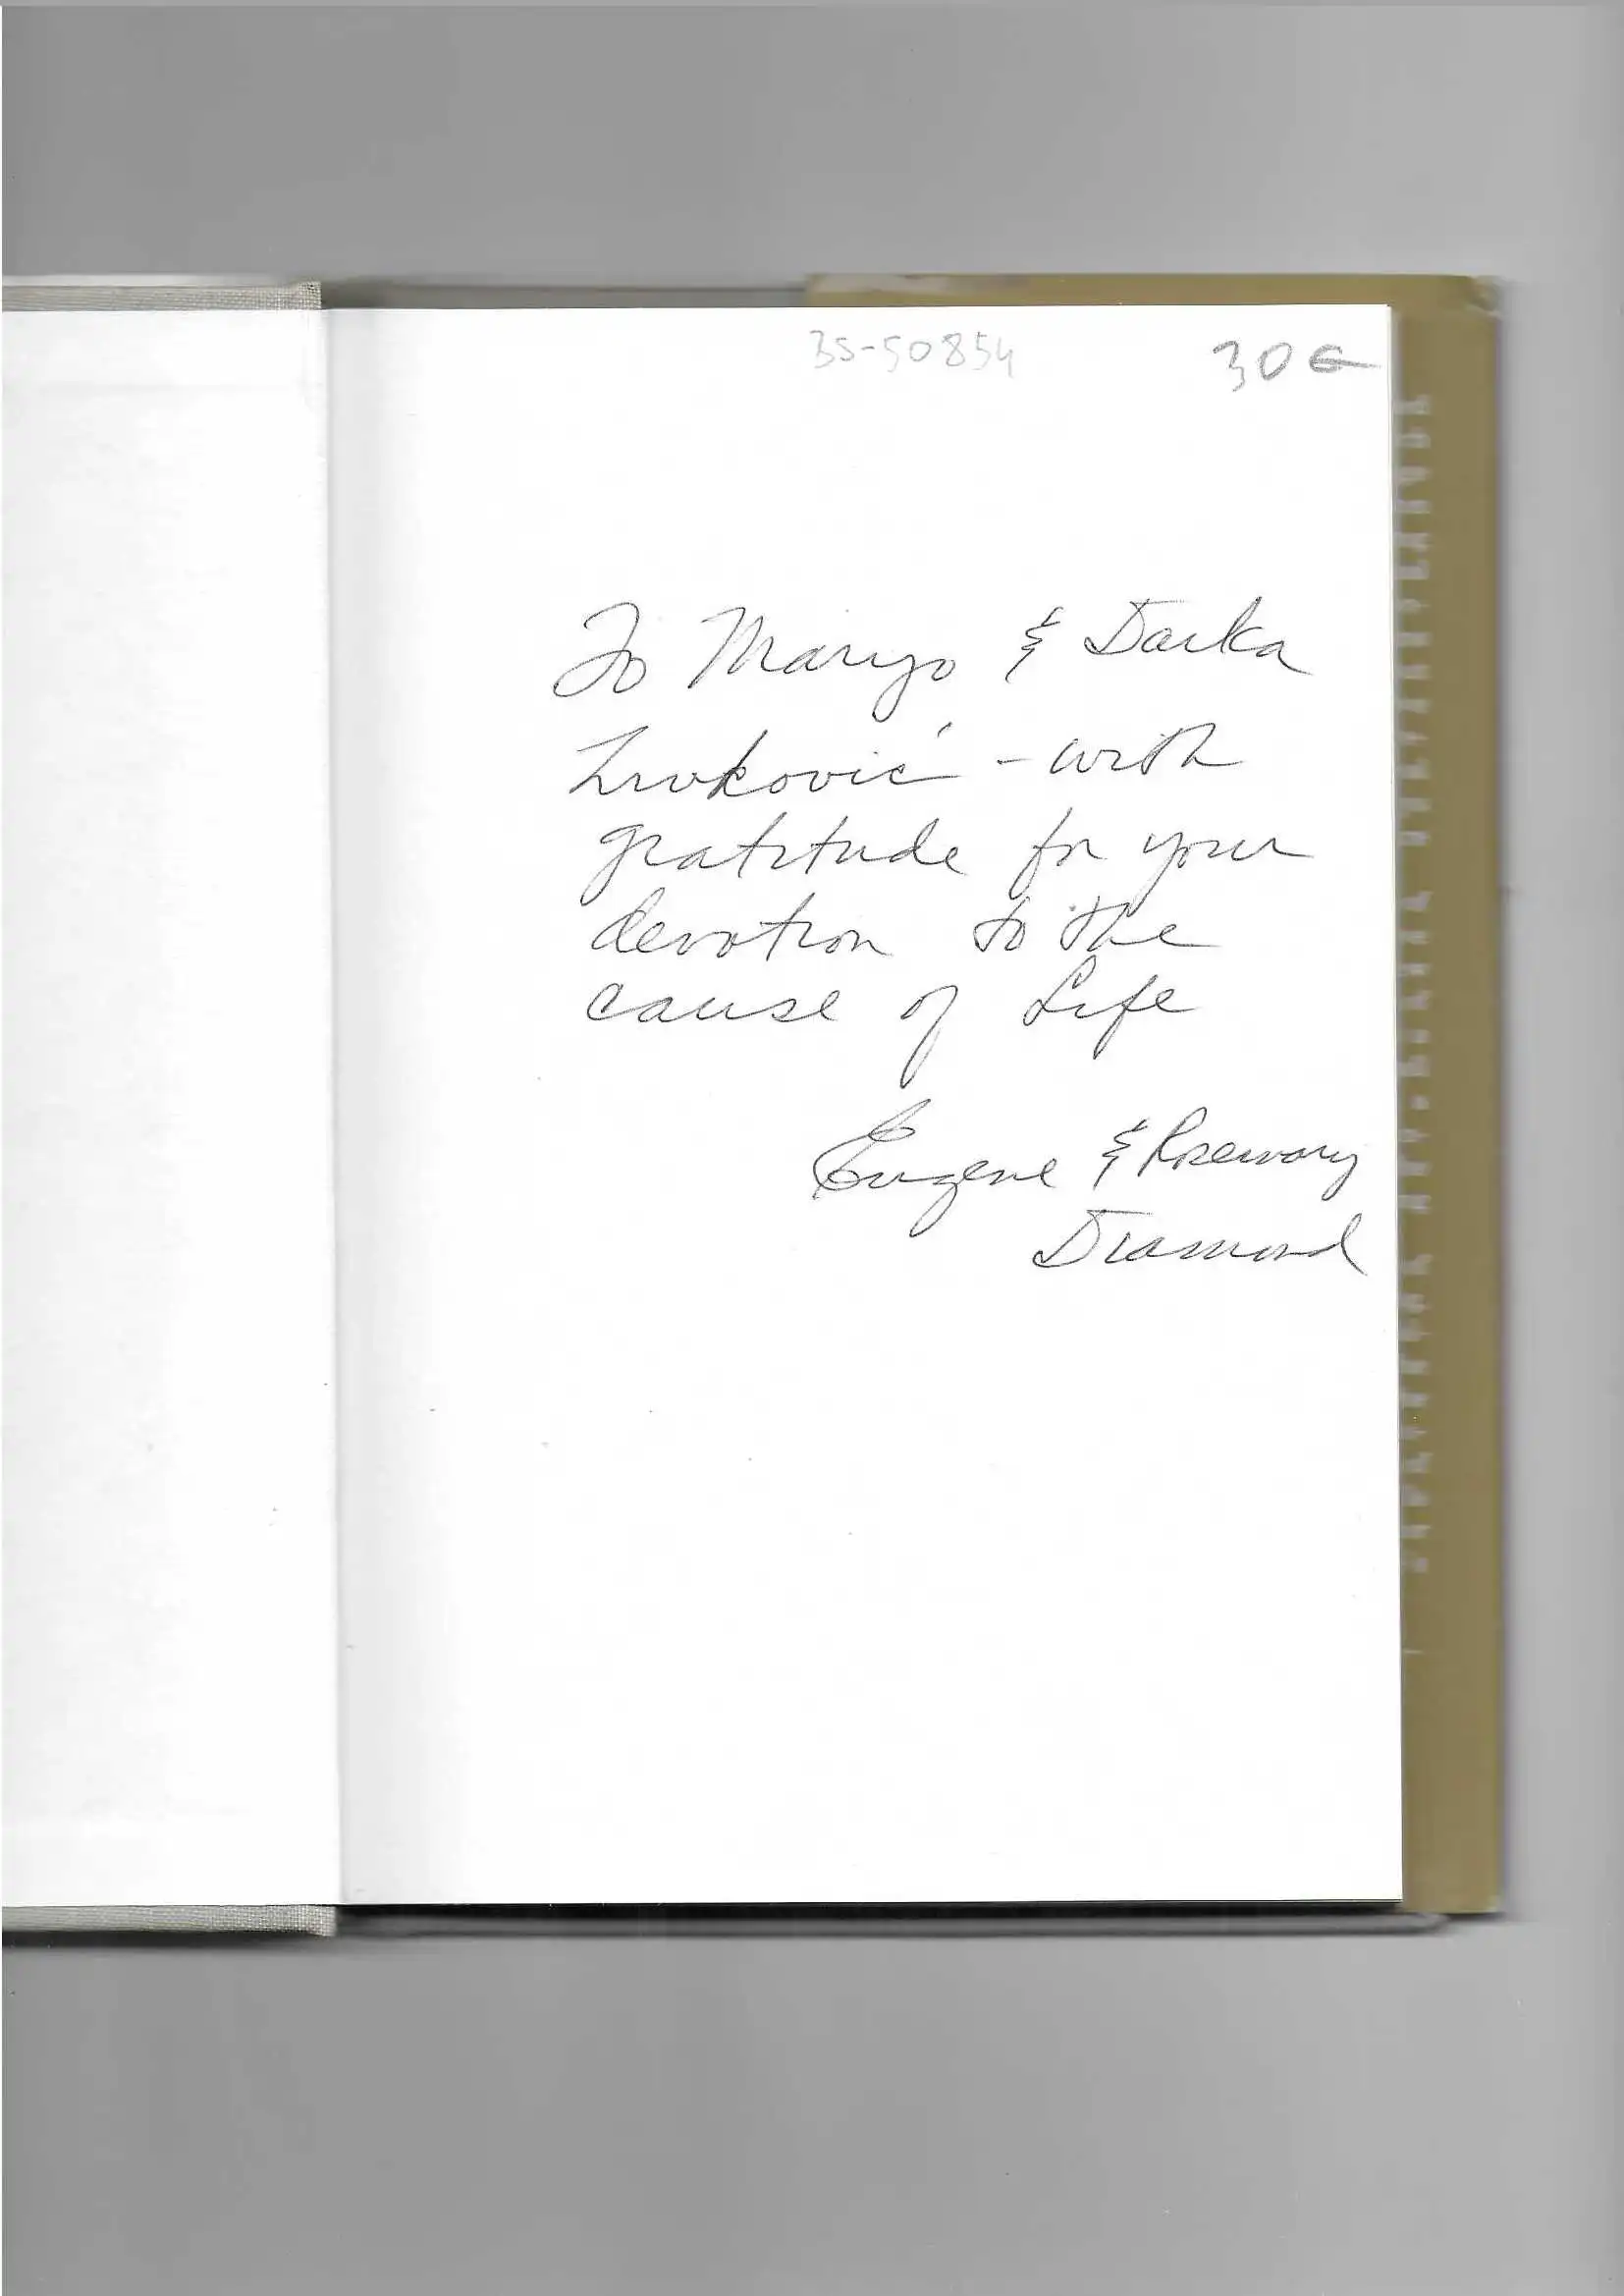 35-50854 30€
To Maryo & Darka
Živković - with
gratitude for your
devotion to the
cause of Life
Eugene & Rosemary
Diamond